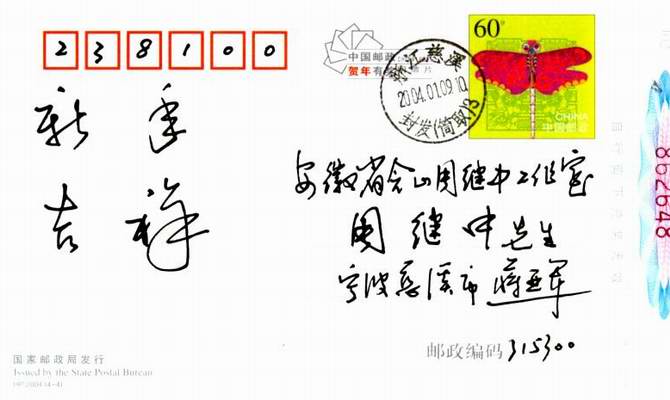 238100
中国邮政
贺年有奖
60分
CHINA
中国邮政
浙江慈溪
2004.01.09.10
封发(筒取)3
新年
吉祥
安徽省含山周继中工作室
周继中先生
宁波慈溪市 蒋亚军
邮政编码 315300
国家邮政局发行
Issued by the State Postal Bureau
862648